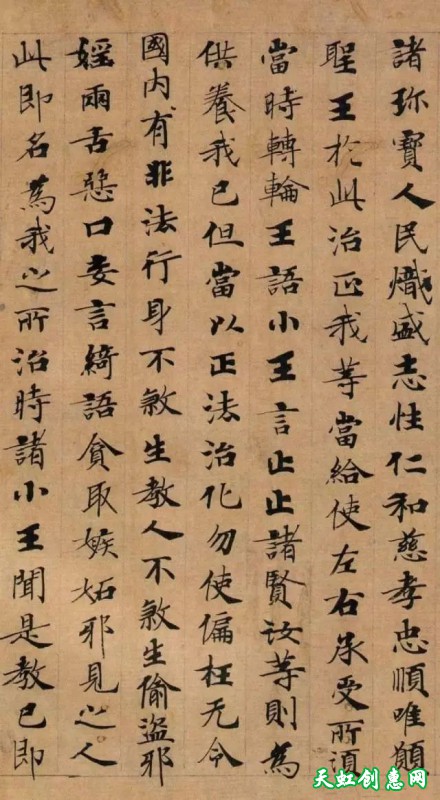 諸珎寶人民熾盛志性仁和慈孝忠順唯願
聖王於此治正我等當給使左右承受所湏
當時轉輪王語小王言止止諸賢汝等則為
供養我已但當以正法治化勿使偏枉无令
國内有非法行身不煞生教人不煞生偷盜邪
婬兩舌惡口妄言綺語貪取嫉妬邪見之人
此即名為我之所治時諸小王聞是教已即
天虹创惠网